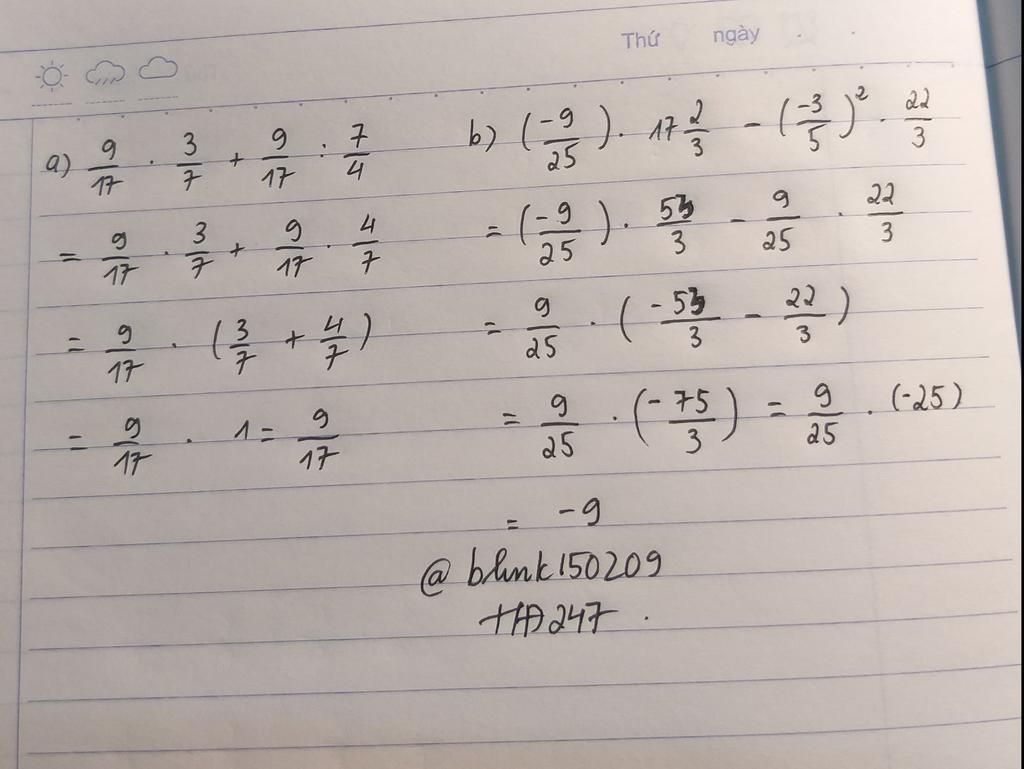 Thứ ngày
a) 9/17 . 3/7 + 9/17 : 7/4
= 9/17 . 3/7 + 9/17 . 4/7
= 9/17 . (3/7 + 4/7)
= 9/17 . 1 = 9/17
b) (-9/25) . 17 2/3 - (-3/5)² . 22/3
= (-9/25) . 53/3 - 9/25 . 22/3
= 9/25 . (-53/3 - 22/3)
= 9/25 . (-75/3) = 9/25 . (-25)
= -9
@blink150209
HD247 .